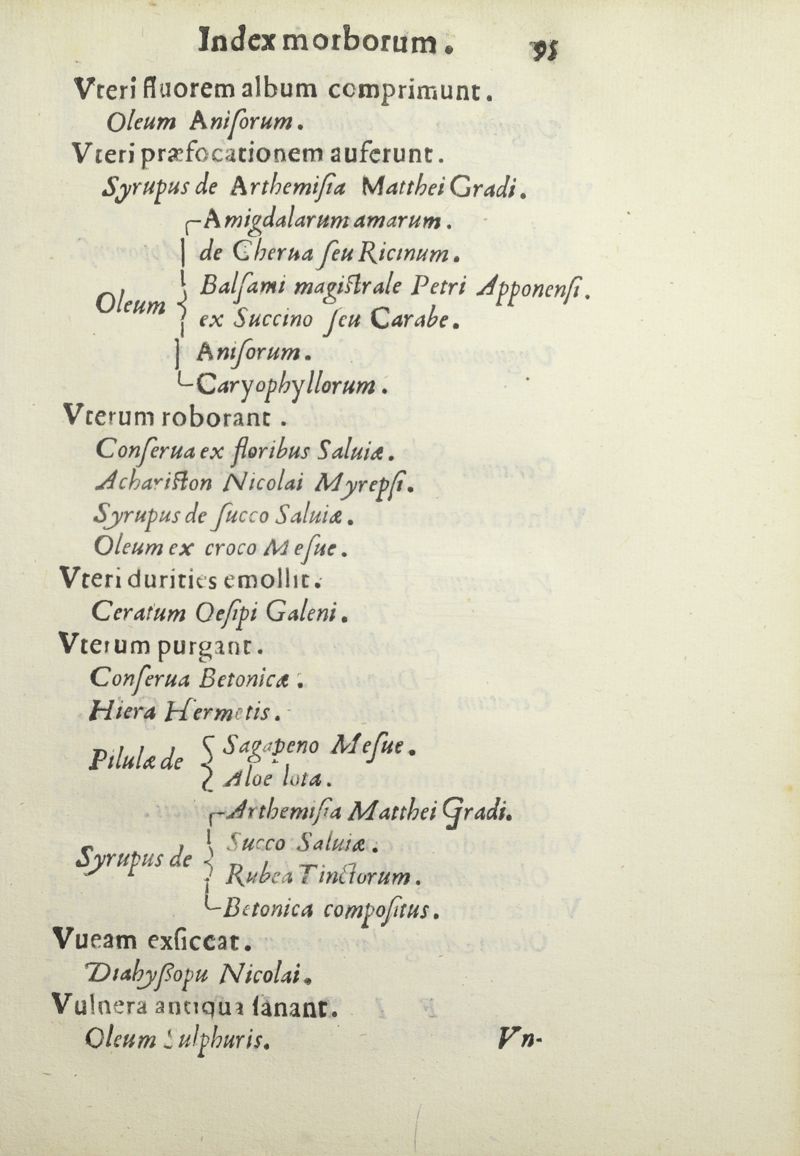 Index morborum. 95
Vteri fluorem album comprimunt.
Oleum Aniſorum.
Vteri præfocationem auferunt.
Syrupus de Arthemiſia Matthei Gradi.
Amigdalarum amarum.
de Cherua ſeu Ricinum.
Balſami magiſtrale Petri Apponenſi.
Oleum
ex Succino ſeu Carabe.
Aniſorum.
Caryophyllorum.
Vterum roborant.
Conſerua ex floribus Saluiæ.
Achariſton Nicolai Myrepſi.
Syrupus de ſucco Saluiæ.
Oleum ex croco Meſue.
Vteri durities emollit.
Ceratum Oeſipi Galeni.
Vterum purgant.
Conſerua Betonicæ.
Hiera Hermetis.
Pilulæ de
Sagapeno Meſue.
Aloe lota.
Arthemiſia Matthei Gradi.
Succo Saluiæ.
Syrupus de
Rubea Tinctorum.
Betonica compoſitus.
Vueam exſiccat.
Diahyßopu Nicolai.
Vulnera antiqua ſanant.
Oleum Sulphuris.
Vn-